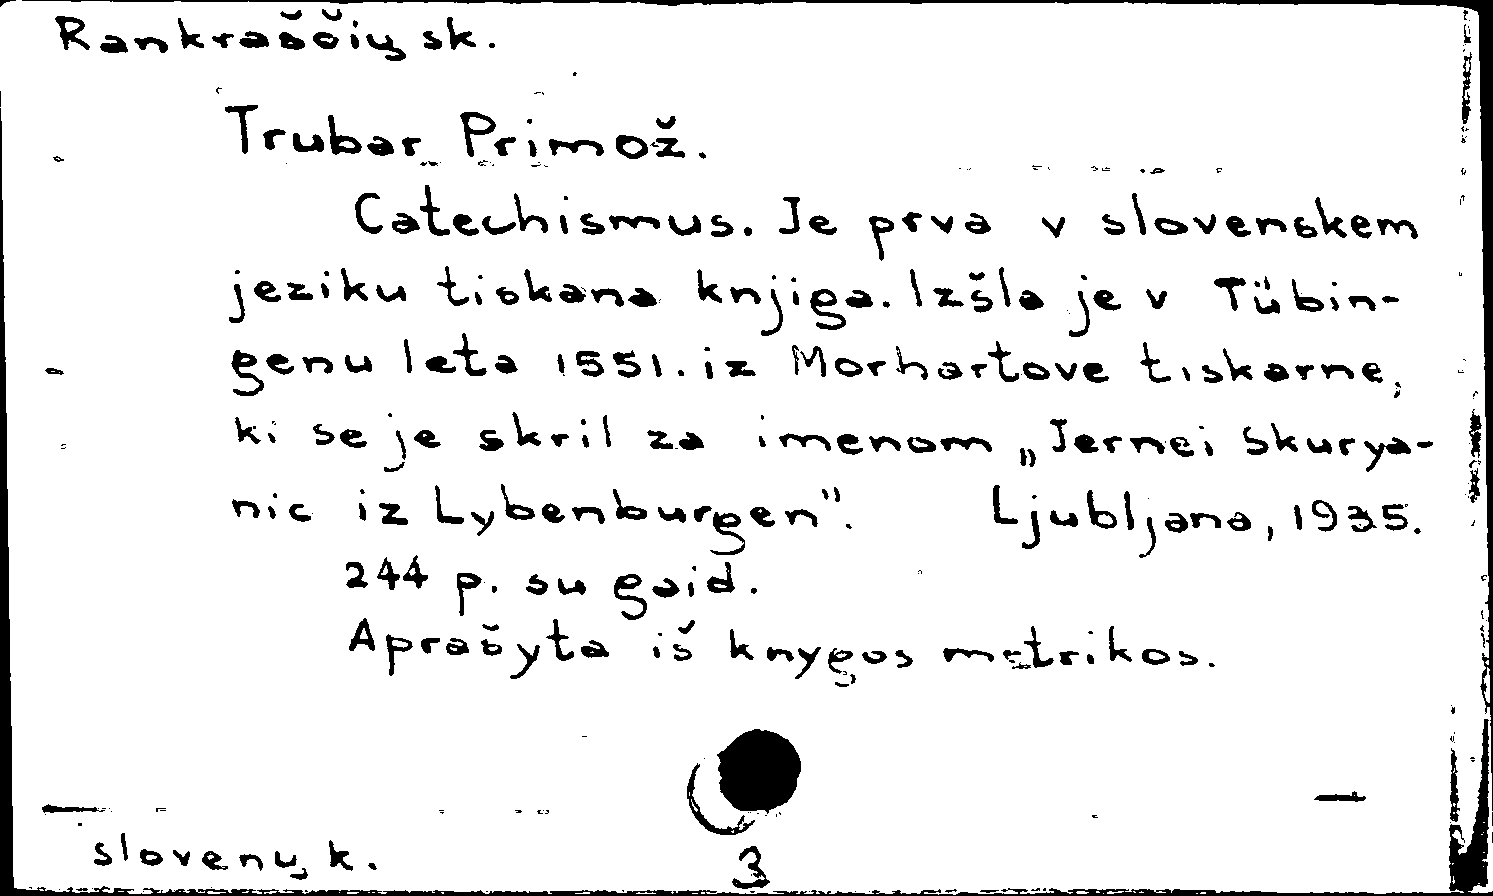 Rankraščių sk.
Trubar Primož.
Catechismus. Je prva v slovenskem
jeziku tiskana knjiga. Izšla je v Tübin-
genu leta 1551. iz Morhartove tiskarne,
ki se je skril za imenom „Jernei Skurya-
nic iz Lybenburgen".    Ljubljana, 1935.
244 p. su gaid.
Aprašyta iš knygos metrikos.
slovenų k.    3